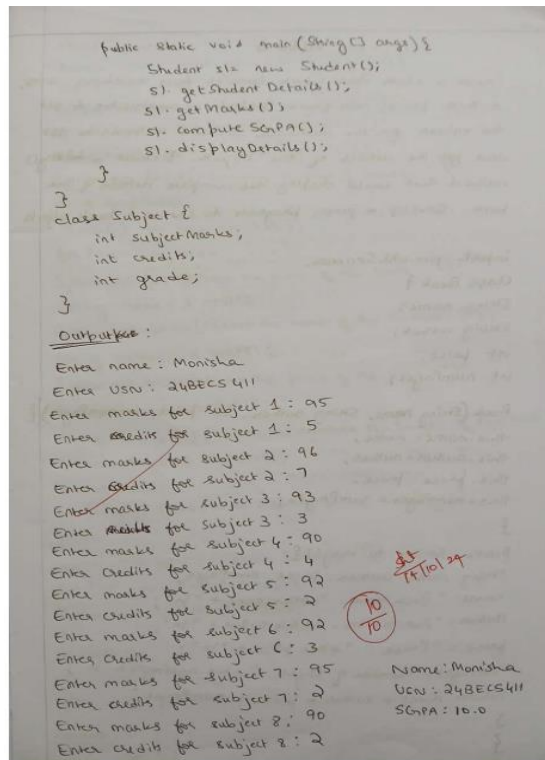 public static void main (String [] args) {
Student s1 = new Student();
s1. getStudent Details ();
s1. getMarks ();
s1. compute SGPA();
s1. displayDetails ();
}
}
class Subject {
int subjectMarks;
int credits;
int grade;
}
Output:
Enter name : Monisha
Enter USN : 24BECS411
Enter marks for subject 1 : 95
Enter credits for subject 1 : 5
Enter marks for subject 2 : 96
Enter credits for subject 2 : 7
Enter marks for subject 3 : 93
Enter for subject 3 : 3
Enter marks for subject 4 : 90
Enter Credits for subject 4 : 4
Enter marks for subject 5 : 92
Enter credits for subject 5 : 2
Enter marks for subject 6 : 92
Enter Credits for subject 6 : 3
Enter marks for subject 7 : 95
Enter credits for subject 7 : 2
Enter marks for subject 8 : 90
Enter credits for subject 8 : 2
10/24
10
10
Name : Monisha
USN : 24BECS411
SGPA : 10.0